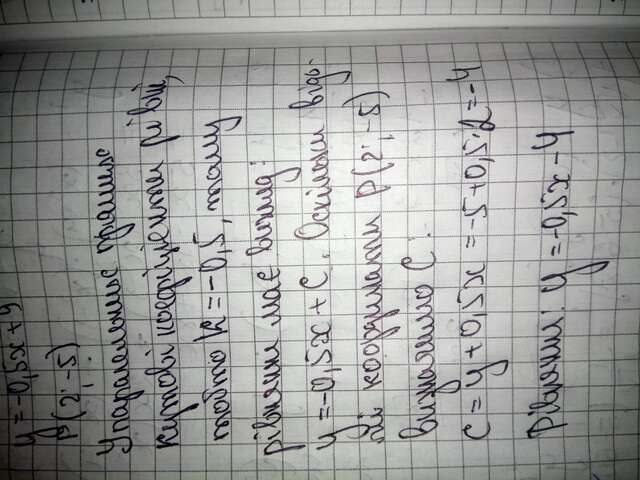 y = -0,5x + 9
P(2; -5)
У паралельних прямих
кутові коефіцієнти рівні,
тобто k = -0,5, тому
рівняння має вигляд:
y = -0,5x + C. Оскільки відо-
мі координати P(2; -5)
визначимо C:
C = y + 0,5x = -5 + 0,5·2 = -4
Рівняння: y = -0,5x - 4